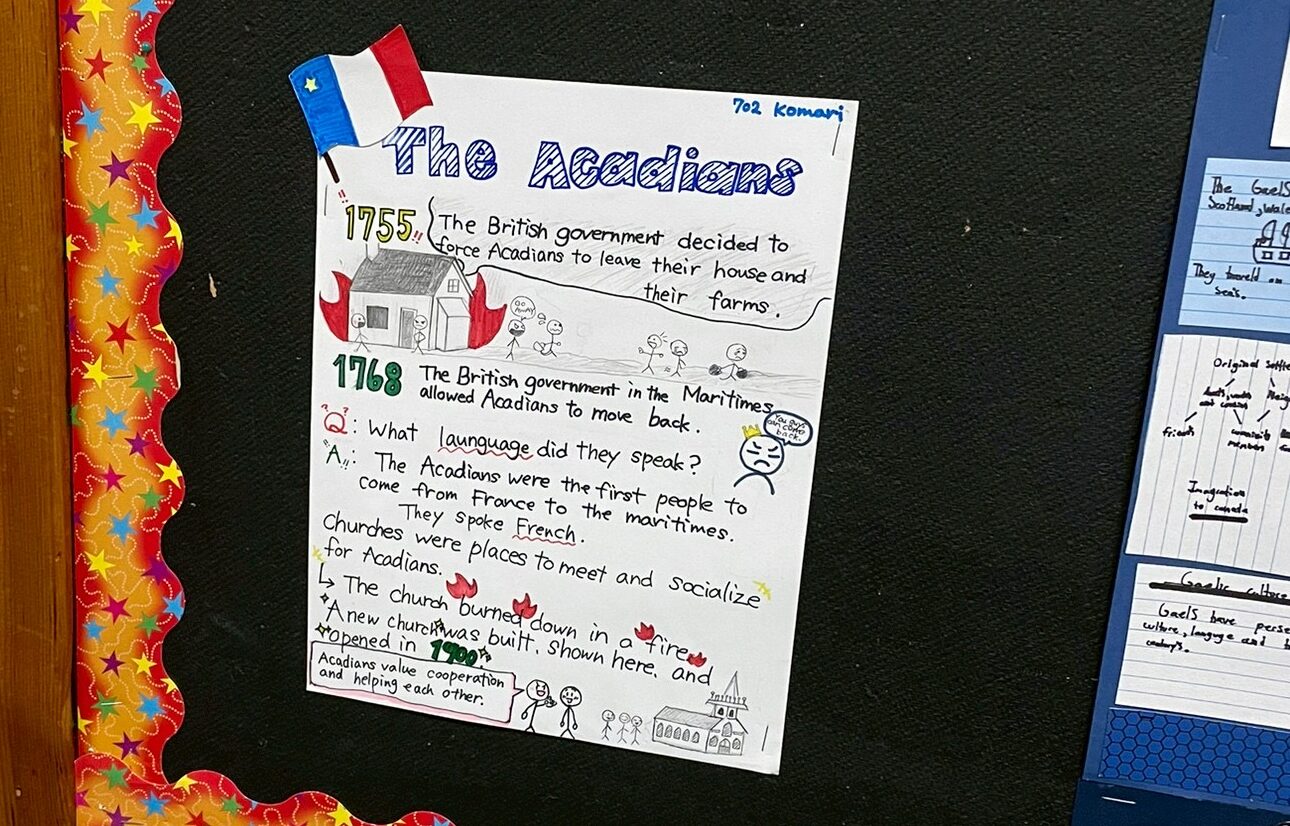 702 Komari
The Acadians
1755
The British government decided to
force Acadians to leave their house and
their farms.
GO AWAY
1768
The British government in the Maritimes
allowed Acadians to move back.
You guys
can come
back.
Q: What launguage did they speak?
A: The Acadians were the first people to
come from France to the maritimes.
They spoke French.
Churches were places to meet and socialize
for Acadians.
↳ The church burned down in a fire.
A new church was built, shown here, and
opened in 1900.
Acadians value cooperation
and helping each other.
The Gaels
Scotland, Wale
They
seas.
Original Settle
friends
Imagration
to canada
Gaelic culture
Gaels have perse
culture, languge and